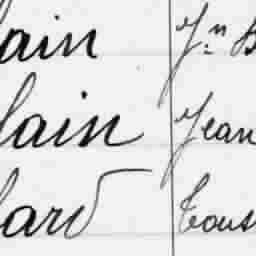 lain Jn
lain Jean
lard Tous